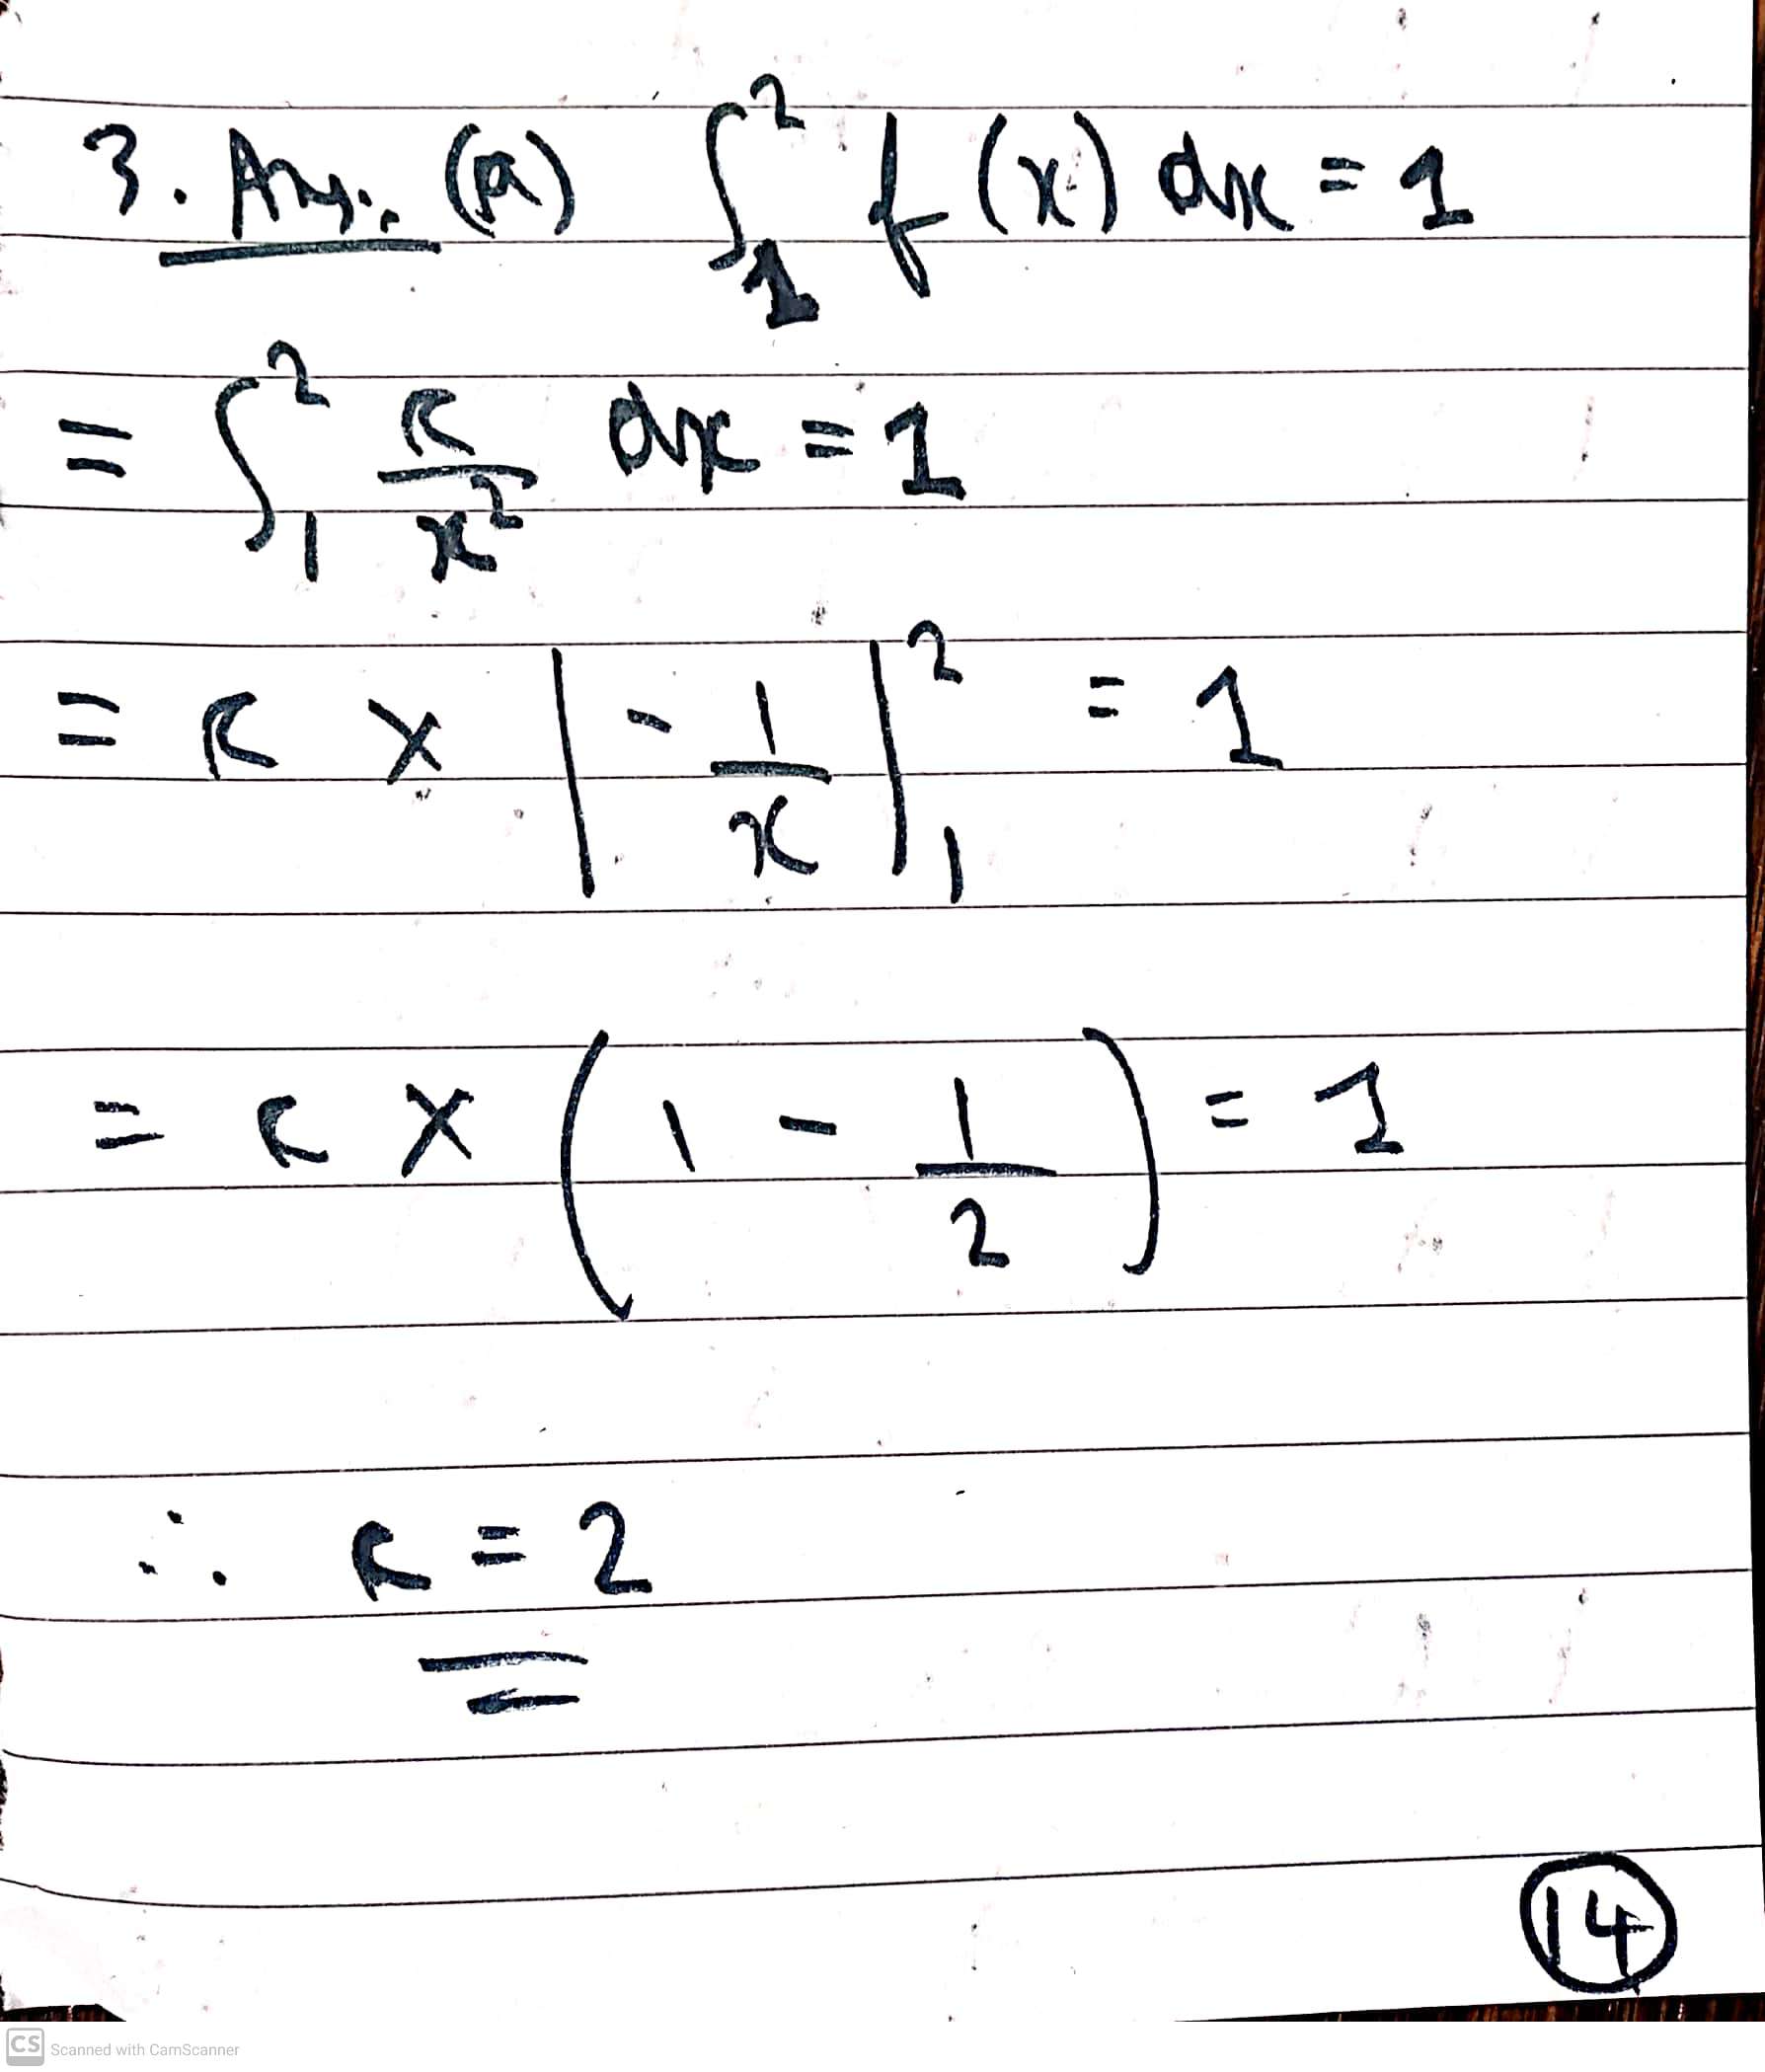 3. Ans:. (a) ∫₁² f(x) dx = 1
= ∫₁² K/x² dx = 1
= K × |-1/x|₁² = 1
= K × (1 - 1/2) = 1
∴ K = 2
14
CS Scanned with CamScanner